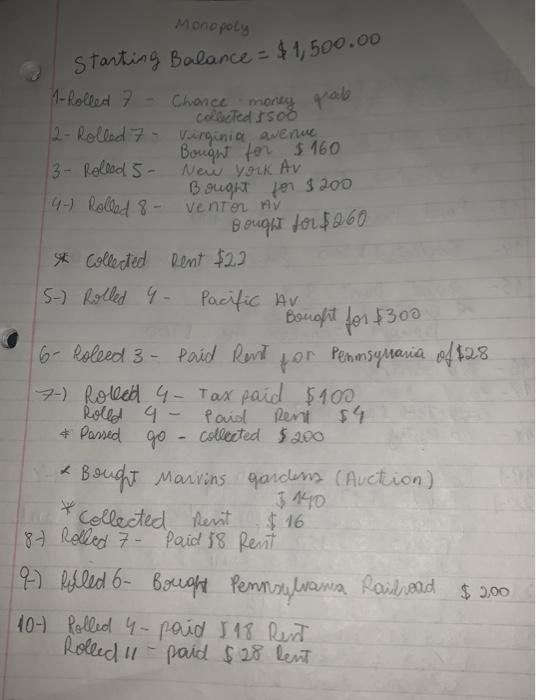 Monopoly
Starting Balance = $1,500.00
1-Rolled 7 - Chance money grab
collected $500
2- Rolled 7 - Virginia avenue
Bought for $160
3- Rolled 5 - New York Av
Bought for $200
4-) Rolled 8 - Ventor Av
Bought for $260
* Collected Rent $22
5-) Rolled 4 - Pacific Av
Bought for $300
6- Rolled 3 - Paid Rent for Pennsyvania of $28
7-) Rolled 4 - Tax paid $100
Rolled 4 - Paid Rent $4
* Passed go - collected $200
* Bought Marvins gardens (Auction)
$140
* Collected Rent $16
8-) Rolled 7 - Paid $8 Rent
9-) Rolled 6- Bought Pennsylvania Railroad $200
10-) Rolled 4 - paid $18 Rent
Rolled 11 - paid $28 Rent